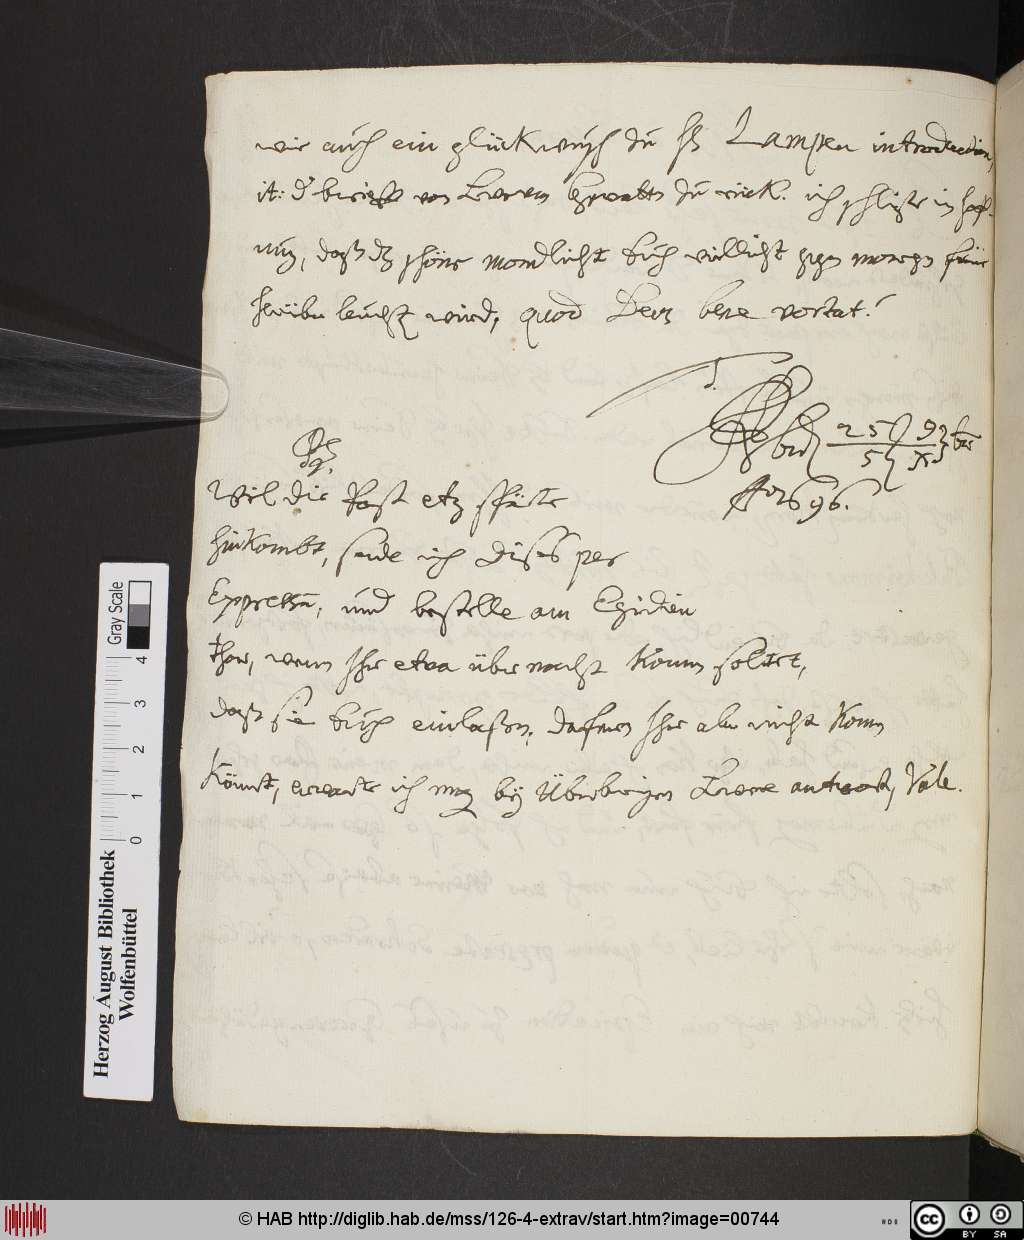 wie auch ein glückwunsch zu H. Lampen introduction,
it: d. brieff von Bremen zu rück. ich schließe in hoff-
nung, daß dz schöne mondlicht Euch villeicht gegen morgen
herüber leuchten wird, quod Deus bene vertat!
25 9
5
Ao 696.
PS.
Weil die Post etz späte
hinkombt, sende ich dises per
und bestelle am Egidien
thor, wenn Ihr etwa über nacht komen soltet,
daß sie Euch einlaßen, dafern Ihr aber nicht komen
könnt, erwarte ich bey Überbringern antwort, Vale.
Herzog August Bibliothek
Wolfenbüttel
Gray Scale
0 1 2 3 4
© HAB http://diglib.hab.de/mss/126-4-extrav/start.htm?image=00744
CC BY SA